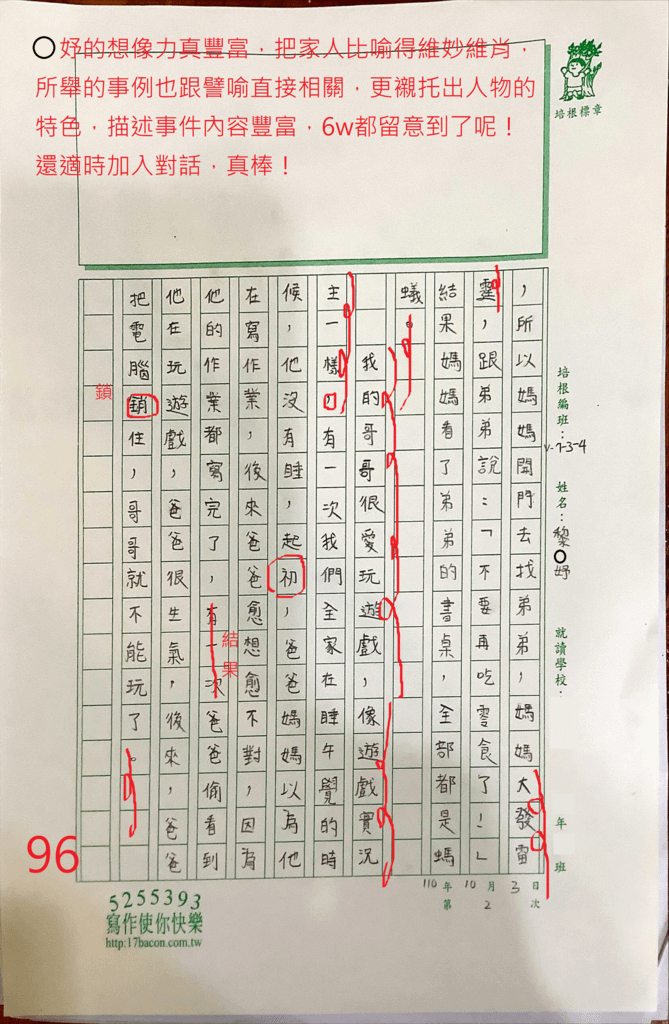 ○妤的想像力真豐富，把家人比喻得維妙維肖，
所舉的事例也跟譬喻直接相關，更襯托出人物的
特色，描述事件內容豐富，6w都留意到了呢！
還適時加入對話，真棒！
培根標章
培根編班：V-7-3-4 姓名：黎○妤 就讀學校： 年 班
110年10月3日
第2次
，所以媽媽開門去找弟弟，媽媽大發雷
霆，跟弟弟說：「不要再吃零食了！」
結果媽媽看了弟弟的書桌，全部都是螞
蟻。
我的哥哥很愛玩遊戲，像遊戲實況
主一樣，有一次我們全家在睡午覺的時
候，他沒有睡，起初，爸爸媽媽以為他
在寫作業，後來爸爸愈想愈不對，因為
結果
他的作業都寫完了，有一次爸爸偷看到
他在玩遊戲，爸爸很生氣，後來，爸爸
把電腦銷住，哥哥就不能玩了。
鎖
96
5255393
寫作使你快樂
http:17bacon.com.tw